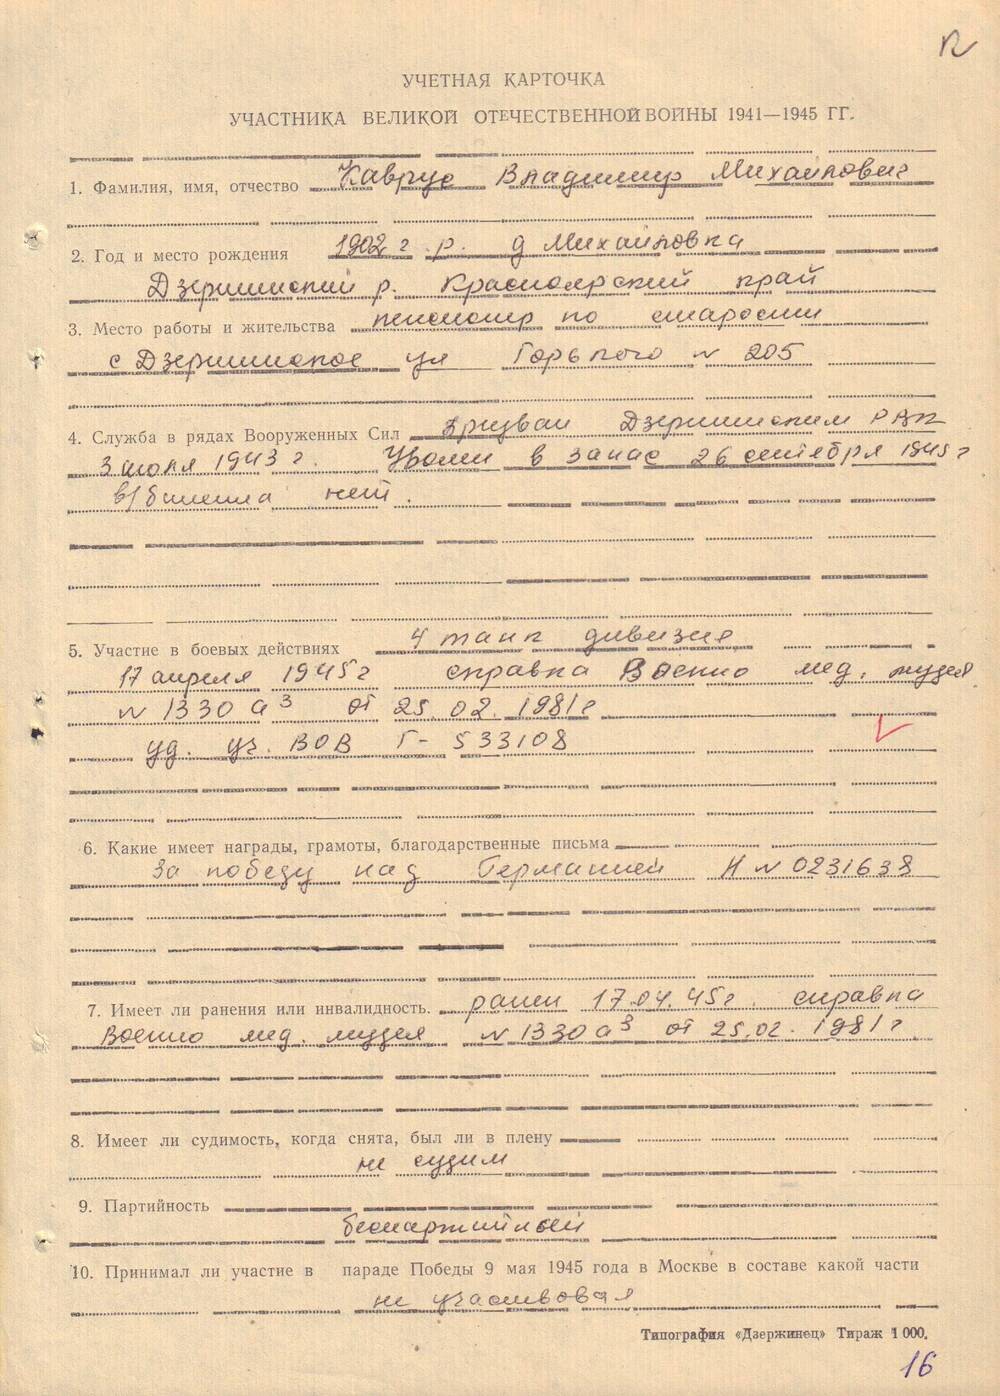 УЧЕТНАЯ КАРТОЧКА
УЧАСТНИКА ВЕЛИКОЙ ОТЕЧЕСТВЕННОЙ ВОЙНЫ 1941—1945 ГГ.
1. Фамилия, имя, отчество Каврус Владимир Михайлович
2. Год и место рождения 1902 г. р. д Михайловка
Дзержинский р. Красноярский край
3. Место работы и жительства пенсионер по старости
с Дзержинское ул Горького № 205
4. Служба в рядах Вооруженных Сил призван Дзержинским РВК
3 июля 1943 г. Уволен в запас 26 сентября 1945 г
в/билета нет.
5. Участие в боевых действиях 4 танк дивизия
17 апреля 1945 г справка Военно мед. музея
№ 1330 а³ от 25.02.1981 г
уд. уч. ВОВ Г- 533108
6. Какие имеет награды, грамоты, благодарственные письма
За победу над Германией Н № 0231638
7. Имеет ли ранения или инвалидность. ранен 17.04.45 г. справка
Военно мед. музея № 1330 а³ от 25.02.1981 г
8. Имеет ли судимость, когда снята, был ли в плену
не судим
9. Партийность
беспартийный
10. Принимал ли участие в параде Победы 9 мая 1945 года в Москве в составе какой части
не участвовал
Типография «Дзержинец» Тираж 1 000.
16